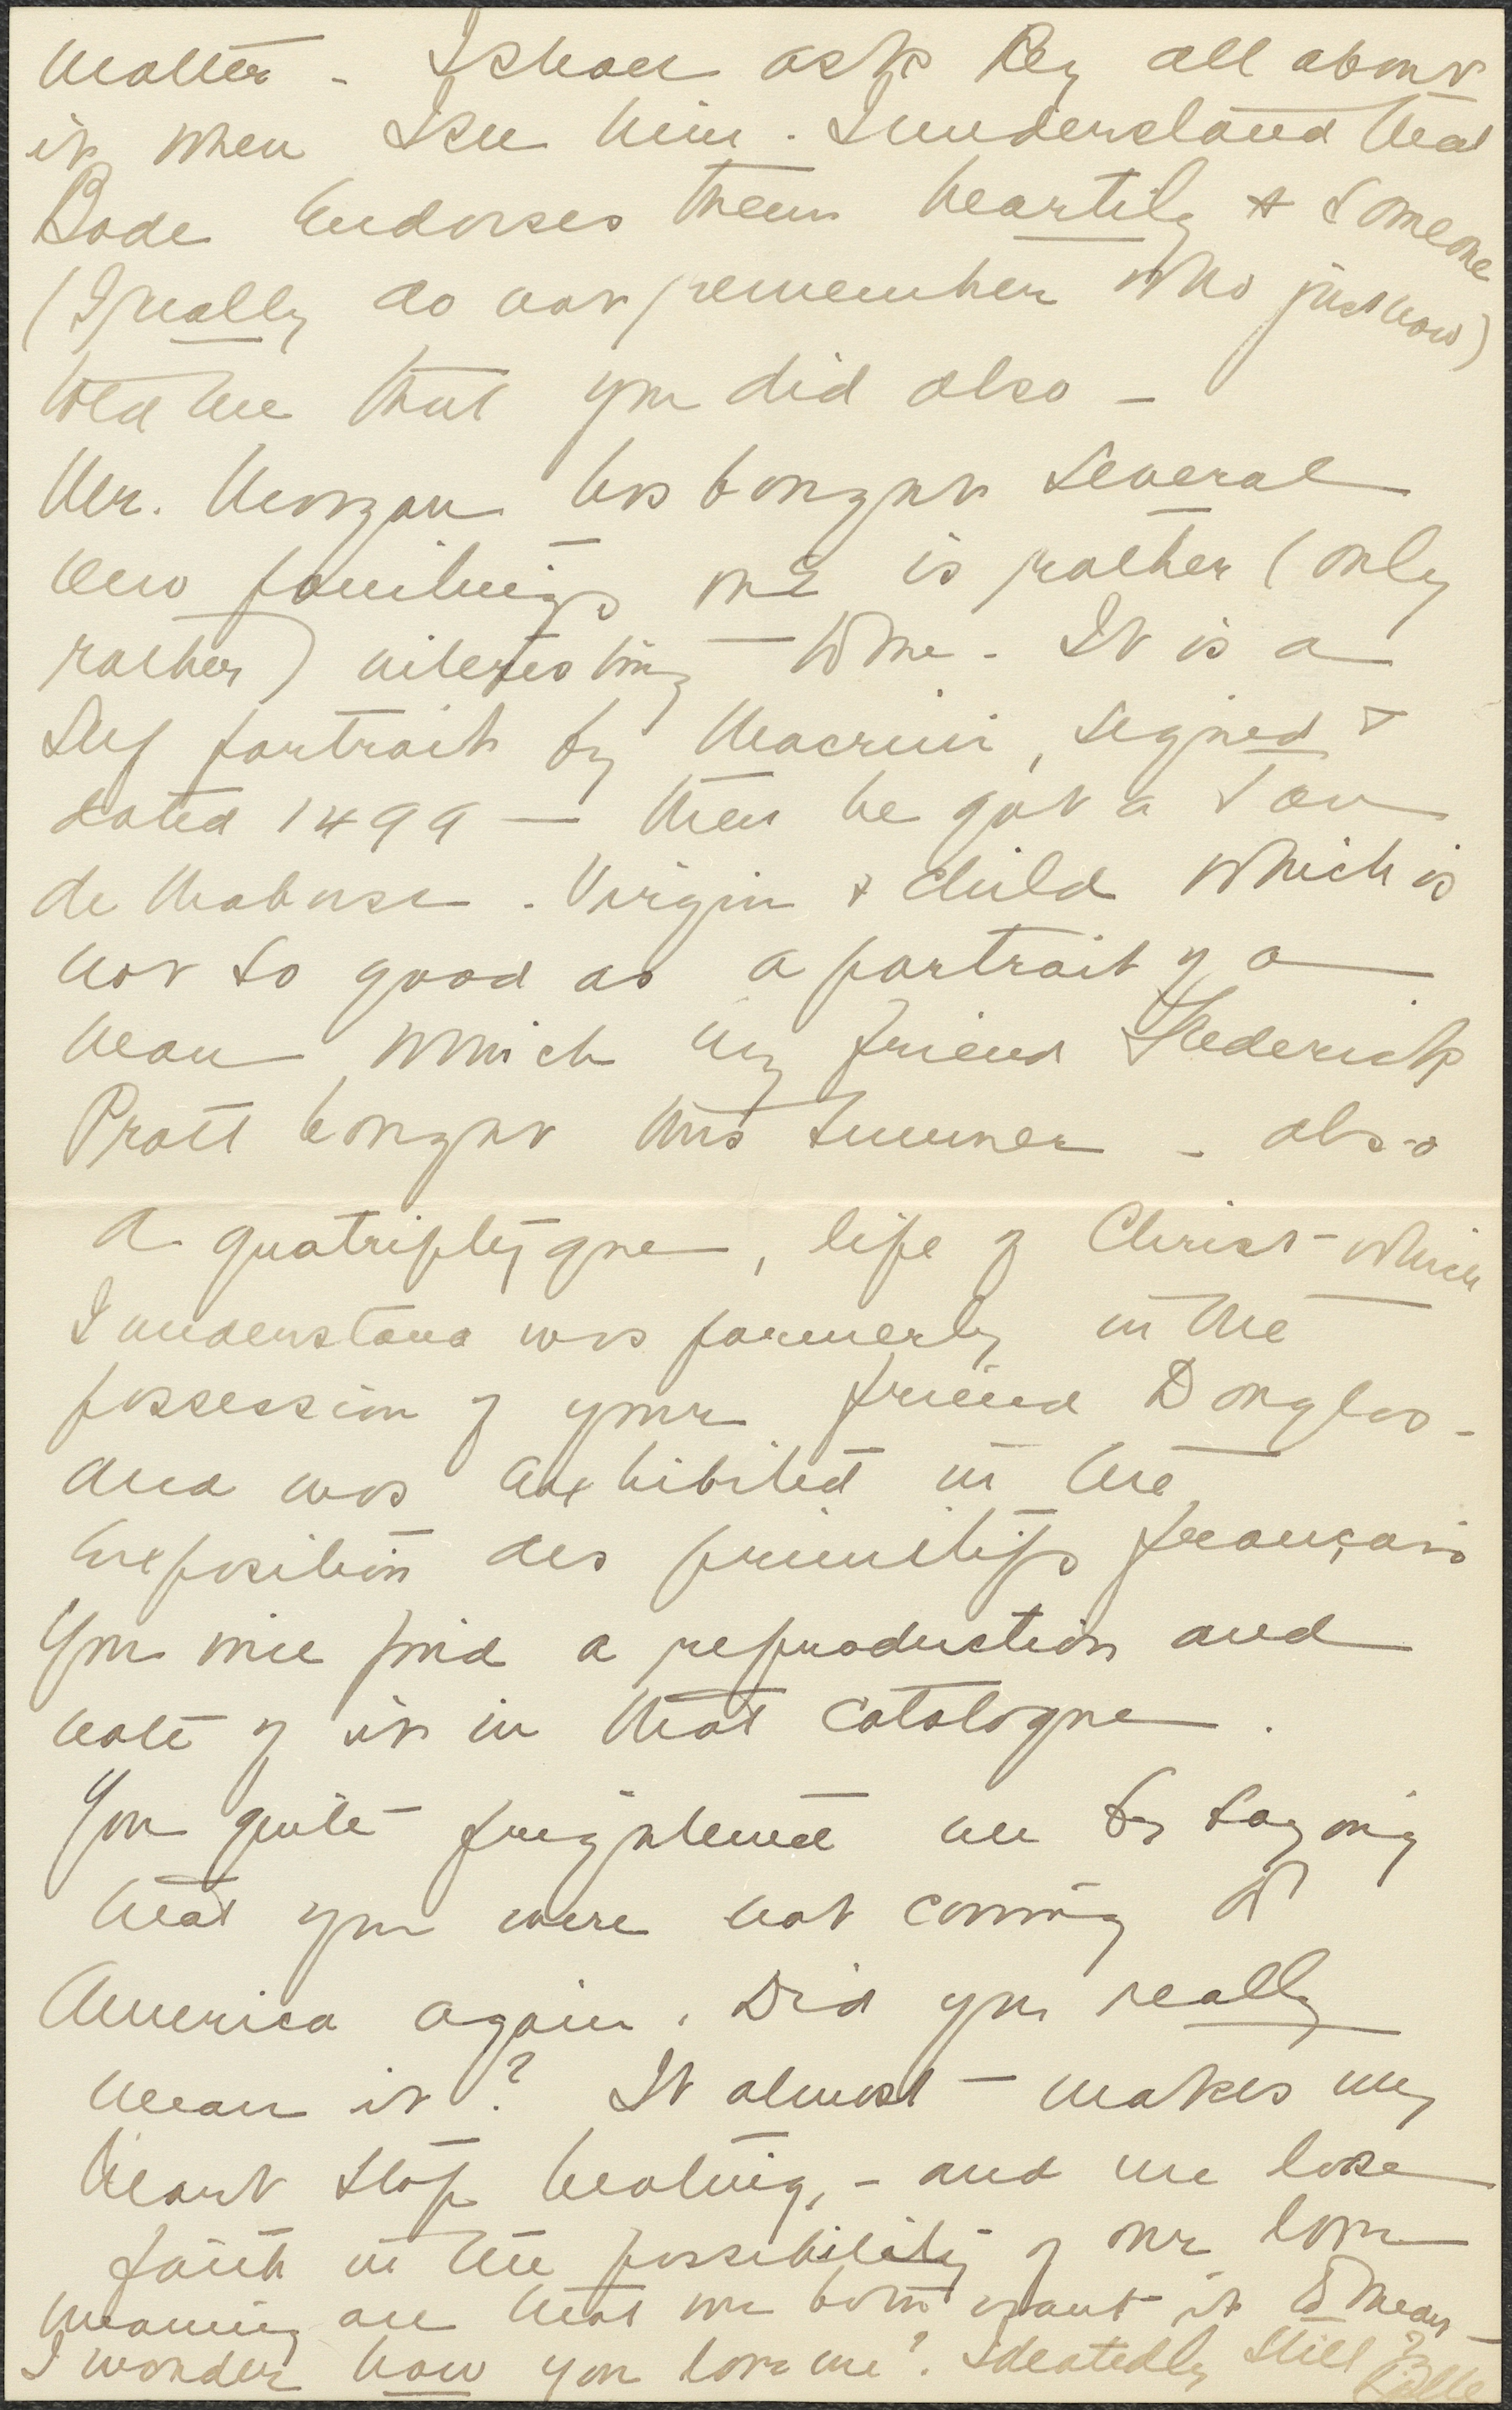 matter - I shall ask Rey all about
it when I see him. I understand that
Bode endorses them heartily & someone
(I really do not remember who just now)
told me that you did also -
Mr. Morgan has bought several
new paintings one is rather (only
rather) interesting - to me. It is a
self portrait by Macrini, signed &
dated 1499 - then he got a Jan
de Mabuse. Virgin & child which is
not so good as a portrait of a
man which my friend Frederick
Pratt bought this summer - also
a quatriptyque, life of Christ - which
I understand was formerly in the
possession of your friend Douglas -
and was exhibited in the
Exposition des primitifs français
You will find a reproduction and
note of it in that catalogue.
You quite frightened me by saying
that you were not coming to
America again. Did you really
mean it? It almost - makes my
heart stop beating, - and me lose
faith in the possibility of our love
meaning all that we both want it to mean -
I wonder how you love me? Ideatedly still?
Belle